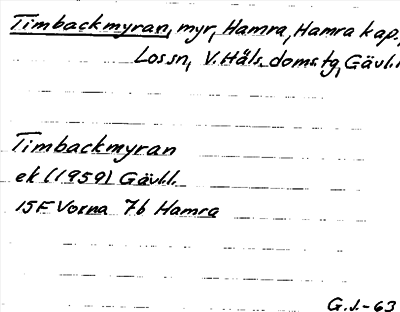 Timbackmyran, myr, Hamra, Hamra kap.,
Los sn, V. Häls. doms.tg, Gävl.l.
Timbackmyran
ek (1959) Gävl.l.
15F Voxna 7b Hamra
G.J.-63